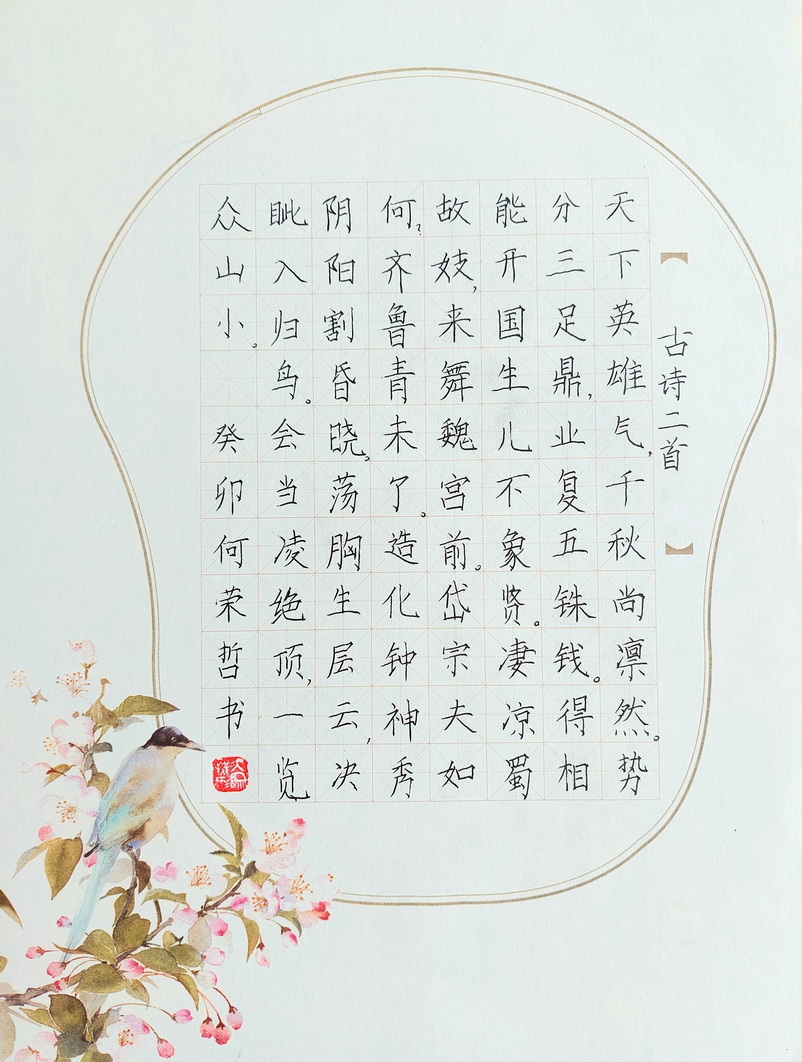 【古诗二首】
天下英雄气,千秋尚凛然。势
分三足鼎,业复五铢钱。得相
能开国,生儿不象贤。凄凉蜀
故妓,来舞魏宫前。岱宗夫如
何?齐鲁青未了。造化钟神秀
阴阳割昏晓。荡胸生层云,决
眦入归鸟。会当凌绝顶,一览
众山小。 癸卯何荣哲书